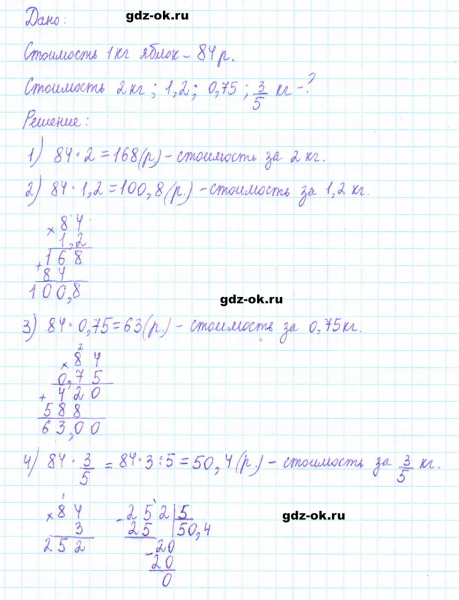 gdz-ok.ru
Дано:
Стоимость 1 кг яблок - 84 р.
Стоимость 2 кг; 1,2; 0,75; 3/5 кг - ?
Решение:
1) 84 · 2 = 168 (р.) - стоимость за 2 кг.
2) 84 · 1,2 = 100,8 (р.) - стоимость за 1,2 кг.
× 84
1,2
+ 168
84
100,8
gdz-ok.ru
3) 84 · 0,75 = 63 (р.) - стоимость за 0,75 кг.
2
× 84
0,75
+ 420
588
63,00
4) 84 · 3/5 = 84 · 3 : 5 = 50,4 (р.) - стоимость за 3/5 кг.
1
× 84
3
252
- 252 | 5
25 | 50,4
- 20
20
0
gdz-ok.ru